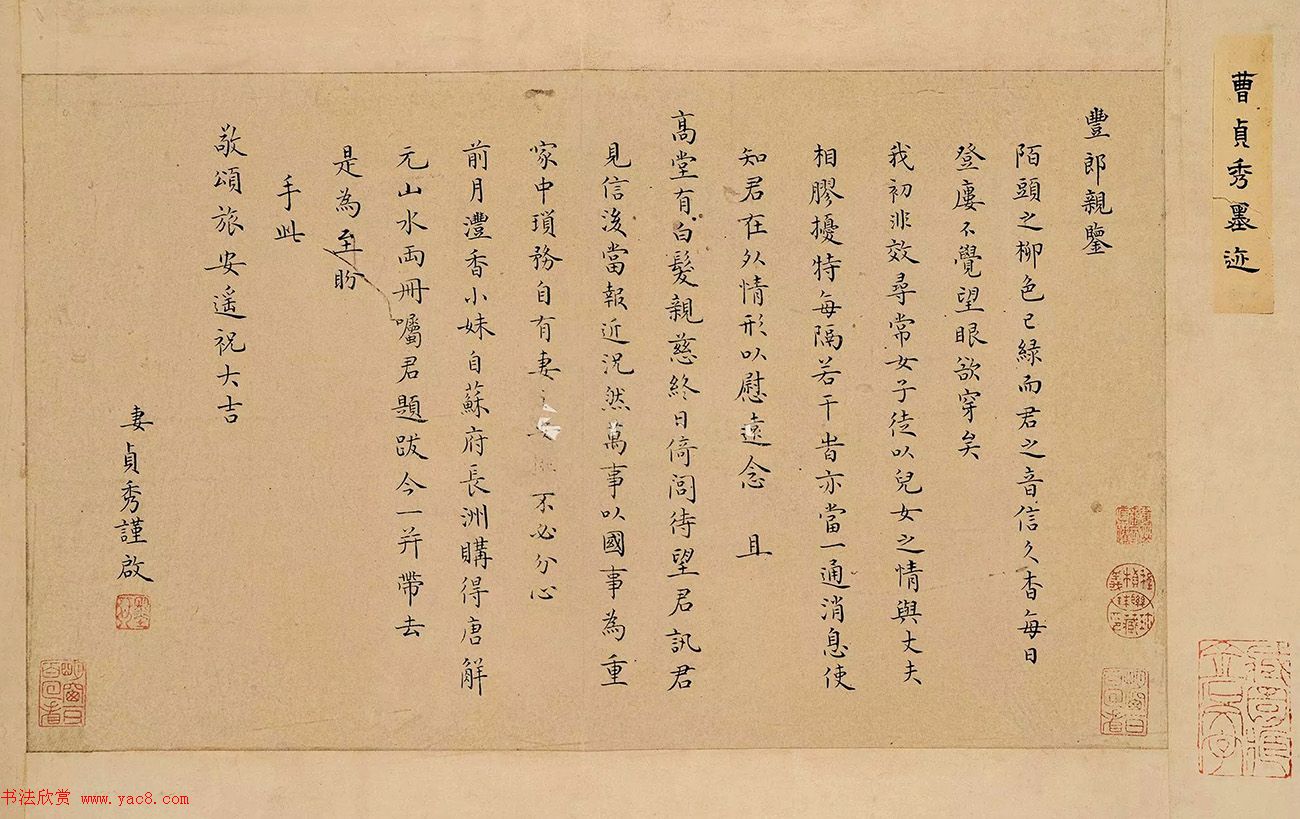 曹貞秀墨迹
豐郎親鑒
陌頭之柳色已綠而君之音信久杳每日
登廔不覺望眼欲穿矣
我初非效尋常女子徒以兒女之情與丈夫
相膠擾特每隔若干旹亦當一通消息使
知君在外情形以慰遠念 且
高堂有白髮親慈終日倚閭待望君訊君
見信後當報近況然萬事以國事為重
家中瑣務自有妻 不必分心
前月灃香小妹自蘇府長洲購得唐解
元山水兩冊囑君題跋今一并帶去
是為至盼
手此
敬頌旅安遥祝大吉
妻貞秀謹啟
书法欣赏 www.yac8.com